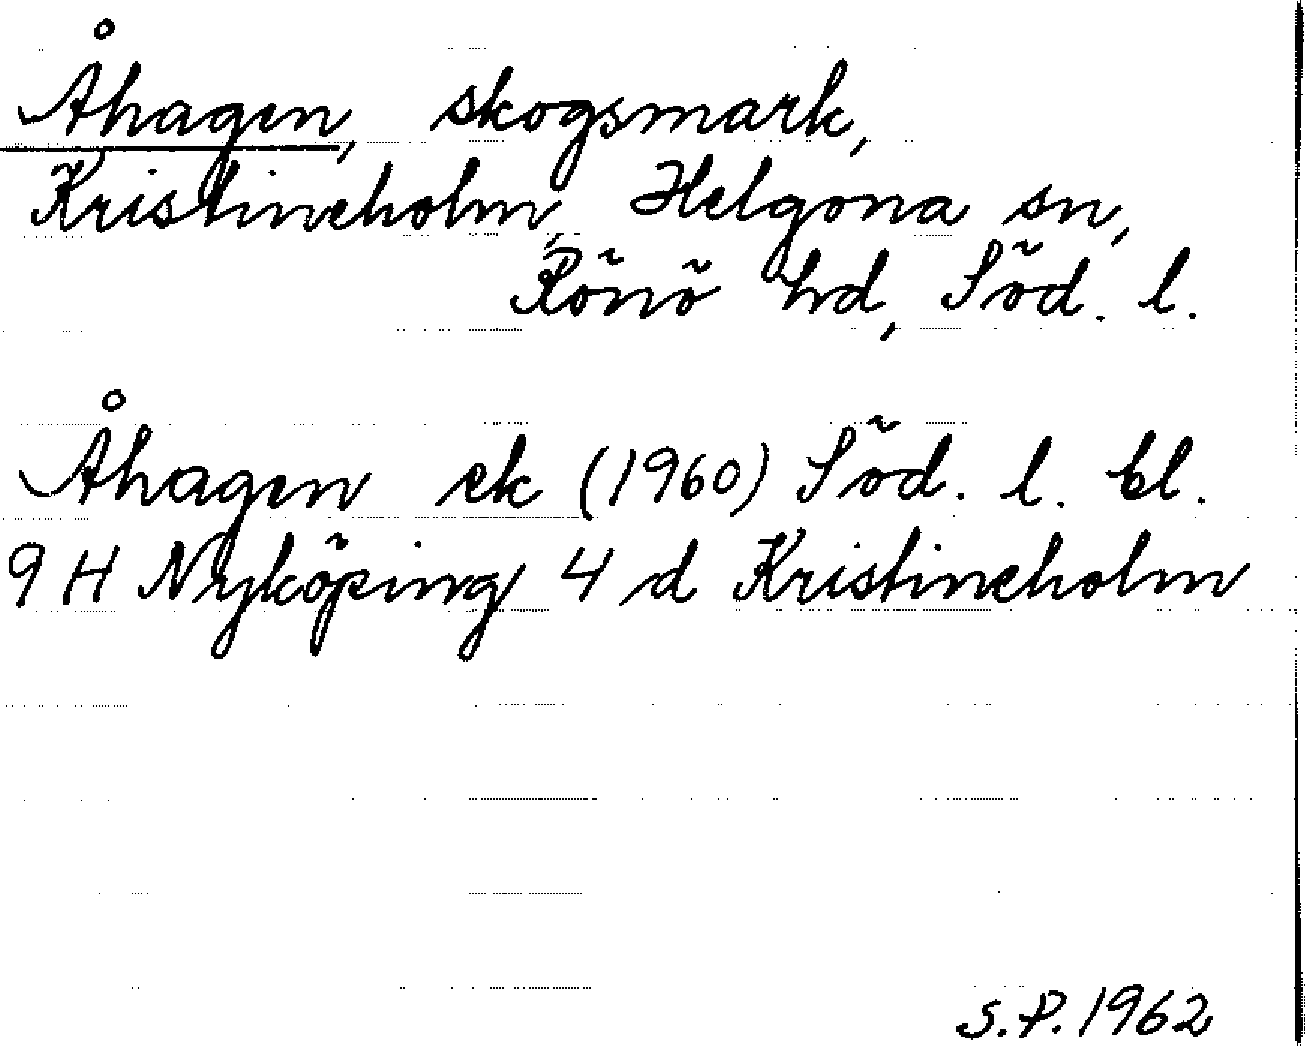 Åhagen, skogsmark,
Kristineholm, Helgona sn,
Rönö hd, Söd. l.
Åhagen ek (1960) Söd. l. bl.
9 H Nyköping 4 d Kristineholm
S.P. 1962